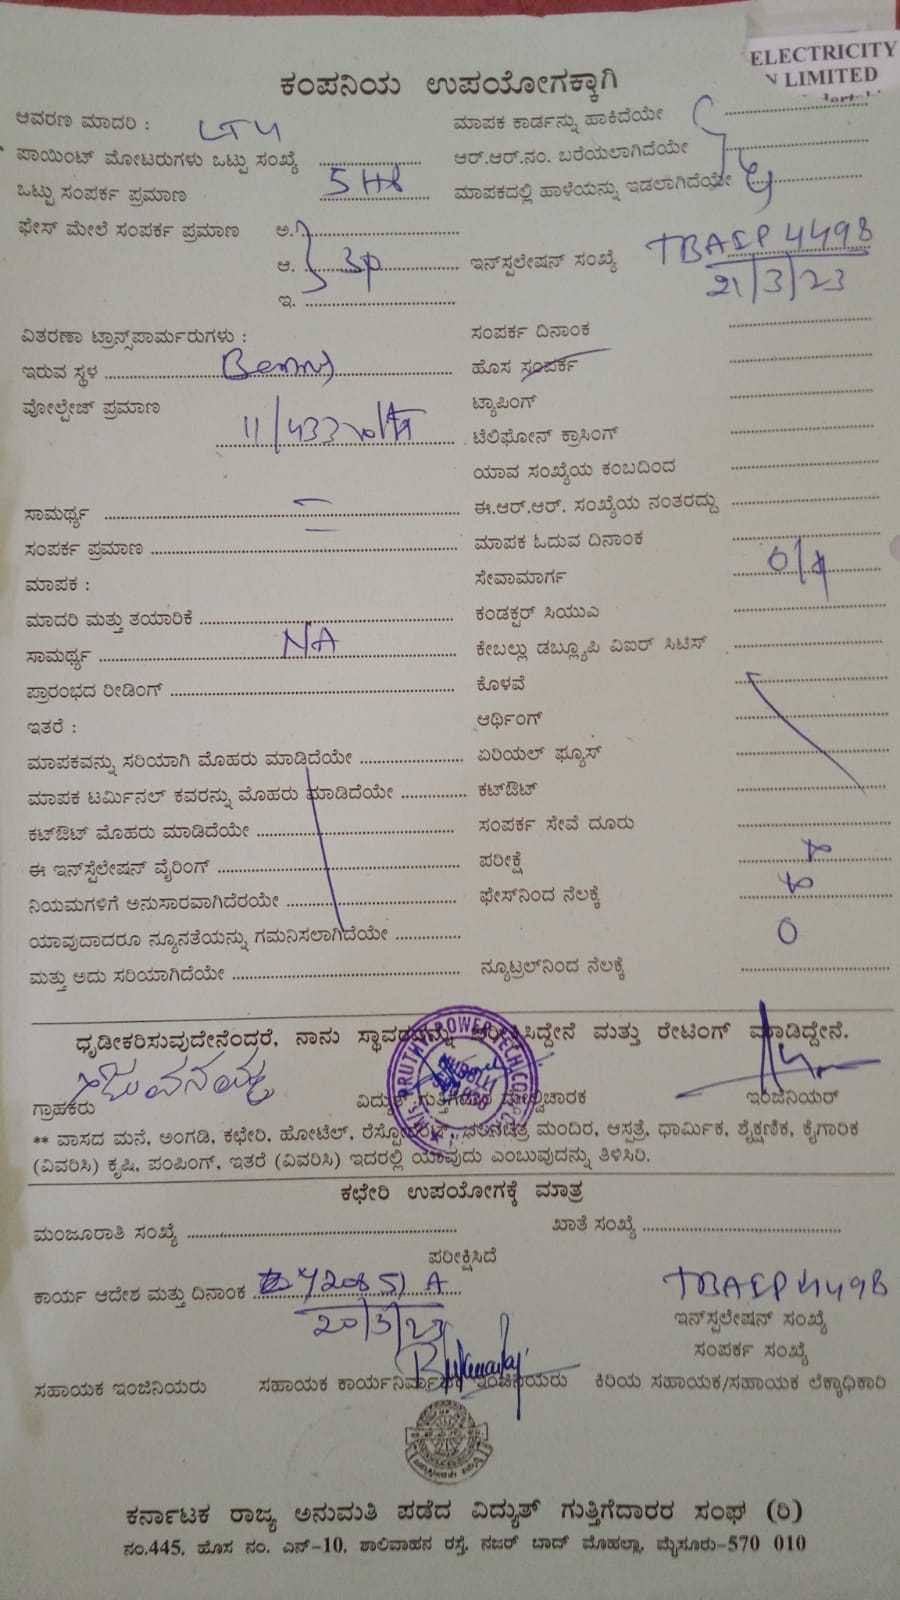 ELECTRICITY
N LIMITED
ಕಂಪನಿಯ ಉಪಯೋಗಕ್ಕಾಗಿ
ಆವರಣ ಮಾದರಿ : LT4
ಮಾಪಕ ಕಾರ್ಡನ್ನು ಹಾಕಿದೆಯೇ
ಪಾಯಿಂಟ್ ಮೋಟರುಗಳು ಒಟ್ಟು ಸಂಖ್ಯೆ
ಆರ್.ಆರ್.ನಂ. ಬರೆಯಲಾಗಿದೆಯೇ
ಒಟ್ಟು ಸಂಪರ್ಕ ಪ್ರಮಾಣ
ಮಾಪಕದಲ್ಲಿ ಹಾಳೆಯನ್ನು ಇಡಲಾಗಿದೆಯೇ
ಫೇಸ್ ಮೇಲೆ ಸಂಪರ್ಕ ಪ್ರಮಾಣ ಅ.
ಆ. 3p ಇನ್‌ಸ್ಟಲೇಷನ್ ಸಂಖ್ಯೆ TBAEP 4498
21/3/23
ಇ.
ವಿತರಣಾ ಟ್ರಾನ್ಸ್‌ಫಾರ್ಮರುಗಳು :
ಸಂಪರ್ಕ ದಿನಾಂಕ
ಇರುವ ಸ್ಥಳ
ಹೊಸ ಸಂಪರ್ಕ
ವೋಲ್ಟೇಜ್ ಪ್ರಮಾಣ
ಟ್ಯಾಪಿಂಗ್
11/433 volts
ಟೆಲಿಫೋನ್ ಕ್ರಾಸಿಂಗ್
ಯಾವ ಸಂಖ್ಯೆಯ ಕಂಬದಿಂದ
ಸಾಮರ್ಥ್ಯ
ಈ.ಆರ್.ಆರ್. ಸಂಖ್ಯೆಯ ನಂತರದ್ದು
ಸಂಪರ್ಕ ಪ್ರಮಾಣ
ಮಾಪಕ ಓದುವ ದಿನಾಂಕ
ಮಾಪಕ :
ಸೇವಾಮಾರ್ಗ
ಮಾದರಿ ಮತ್ತು ತಯಾರಿಕೆ
ಕಂಡಕ್ಟರ್ ಸಿಯುಎ
ಸಾಮರ್ಥ್ಯ NA
ಕೇಬಲ್ಲು ಡಬ್ಲ್ಯೂಪಿ ವಿಐರ್ ಸಿಟಿಸ್
ಪ್ರಾರಂಭದ ರೀಡಿಂಗ್
ಕೊಳವೆ
ಇತರೆ :
ಆರ್ಥಿಂಗ್
ಮಾಪಕವನ್ನು ಸರಿಯಾಗಿ ಮೊಹರು ಮಾಡಿದೆಯೇ
ಏರಿಯಲ್ ಫ್ಯೂಸ್
ಮಾಪಕ ಟರ್ಮಿನಲ್ ಕವರನ್ನು ಮೊಹರು ಮಾಡಿದೆಯೇ
ಕಟ್‌ಔಟ್
ಕಟ್‌ಔಟ್ ಮೊಹರು ಮಾಡಿದೆಯೇ
ಸಂಪರ್ಕ ಸೇವೆ ದೂರು
ಈ ಇನ್‌ಸ್ಟೆಲೇಷನ್ ವೈರಿಂಗ್
ಪರೀಕ್ಷೆ
ನಿಯಮಗಳಿಗೆ ಅನುಸಾರವಾಗಿದೆರಯೇ
ಫೇಸ್‌ನಿಂದ ನೆಲಕ್ಕೆ
ಯಾವುದಾದರೂ ನ್ಯೂನತೆಯನ್ನು ಗಮನಿಸಲಾಗಿದೆಯೇ
0
ಮತ್ತು ಅದು ಸರಿಯಾಗಿದೆಯೇ
ನ್ಯೂಟ್ರಲ್‌ನಿಂದ ನೆಲಕ್ಕೆ
ಧೃಡೀಕರಿಸುವುದೇನೆಂದರೆ, ನಾನು ಸ್ಥಾವರವನ್ನು ಪರೀಕ್ಷಿಸಿದ್ದೇನೆ ಮತ್ತು ರೇಟಿಂಗ್ ಮಾಡಿದ್ದೇನೆ.
ಗ್ರಾಹಕರು ವಿದ್ಯುತ್ ಗುತ್ತಿಗೆದಾರ ಮೇಲ್ವಿಚಾರಕ ಇಂಜಿನಿಯರ್
** ವಾಸದ ಮನೆ, ಅಂಗಡಿ, ಕಛೇರಿ, ಹೋಟೆಲ್, ರೆಸ್ಟೋರೆಂಟ್, ಚಲನಚಿತ್ರ ಮಂದಿರ, ಆಸ್ಪತ್ರೆ, ಧಾರ್ಮಿಕ, ಶೈಕ್ಷಣಿಕ, ಕೈಗಾರಿಕ
(ವಿವರಿಸಿ) ಕೃಷಿ, ಪಂಪಿಂಗ್, ಇತರೆ (ವಿವರಿಸಿ) ಇದರಲ್ಲಿ ಯಾವುದು ಎಂಬುವುದನ್ನು ತಿಳಿಸಿರಿ.
ಕಛೇರಿ ಉಪಯೋಗಕ್ಕೆ ಮಾತ್ರ
ಮಂಜೂರಾತಿ ಸಂಖ್ಯೆ ಖಾತೆ ಸಂಖ್ಯೆ
ಪರೀಕ್ಷಿಸಿದೆ
ಕಾರ್ಯ ಆದೇಶ ಮತ್ತು ದಿನಾಂಕ
20/3/23
TBAEP 4498
ಇನ್‌ಸ್ಟಲೇಷನ್ ಸಂಖ್ಯೆ
ಸಂಪರ್ಕ ಸಂಖ್ಯೆ
ಸಹಾಯಕ ಇಂಜಿನಿಯರು ಸಹಾಯಕ ಕಾರ್ಯನಿರ್ವಾಹಕ ಇಂಜಿನಿಯರು ಕಿರಿಯ ಸಹಾಯಕ/ಸಹಾಯಕ ಲೆಕ್ಕಾಧಿಕಾರಿ
ಕರ್ನಾಟಕ ರಾಜ್ಯ ಅನುಮತಿ ಪಡೆದ ವಿದ್ಯುತ್ ಗುತ್ತಿಗೆದಾರರ ಸಂಘ (ರಿ)
ನಂ.445, ಹೊಸ ನಂ. ಎನ್-10, ಶಾಲಿವಾಹನ ರಸ್ತೆ, ನಜರ್ ಬಾದ್ ಮೊಹಲ್ಲಾ, ಮೈಸೂರು-570 010